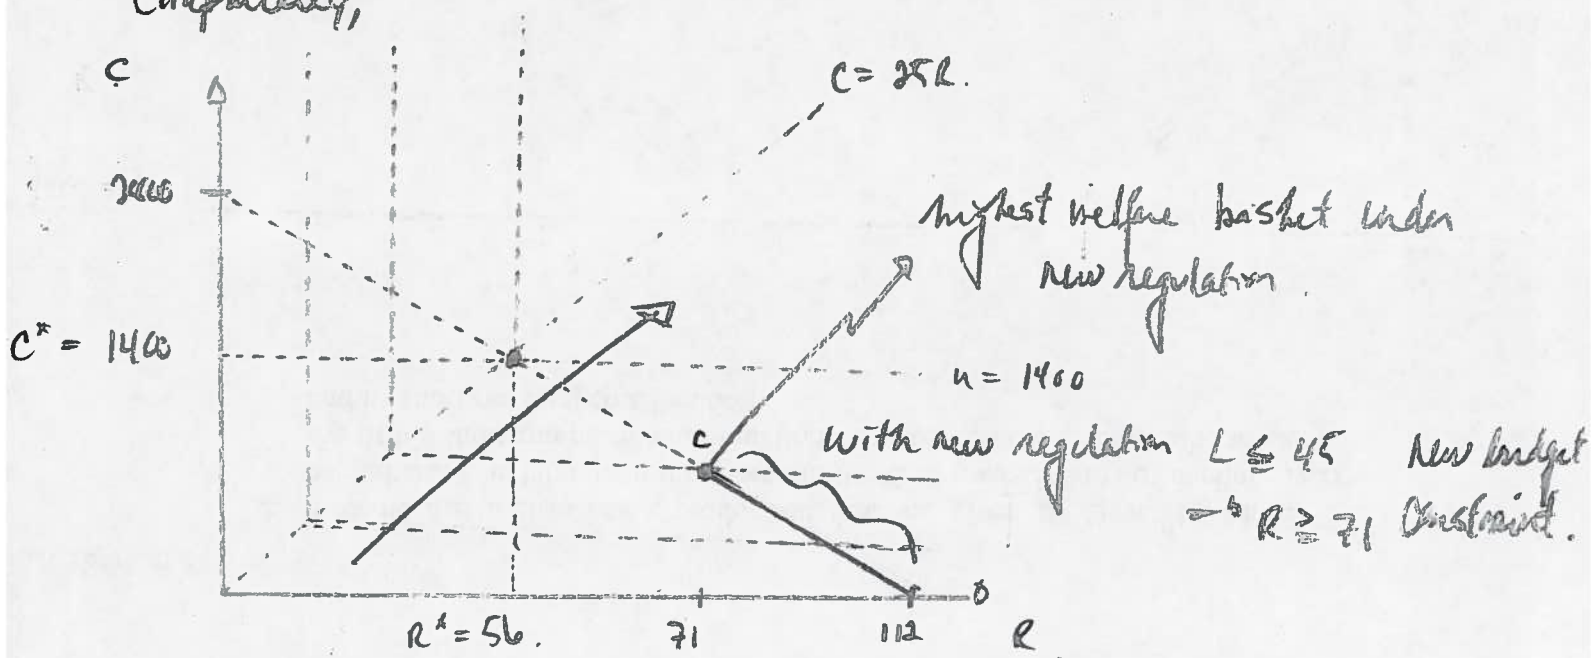 Comparatively,
C
C = 25R.
2800
highest welfare basket under
new regulation.
C* = 1400
u = 1400
C
with new regulation L ≤ 45 New budget
→ R ≥ 71 Constraint.
R* = 56. 71 112 R